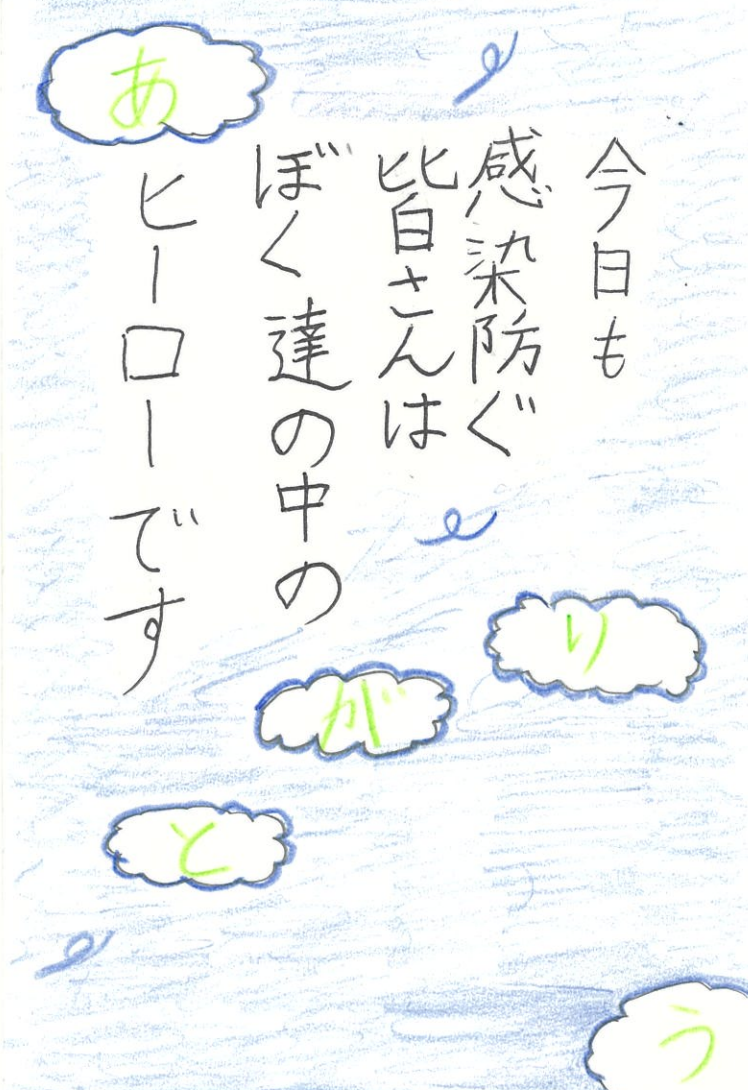 今日も
感染防ぐ
皆さんは
ぼく達の中の
ヒーローです
あ
り
が
と
う